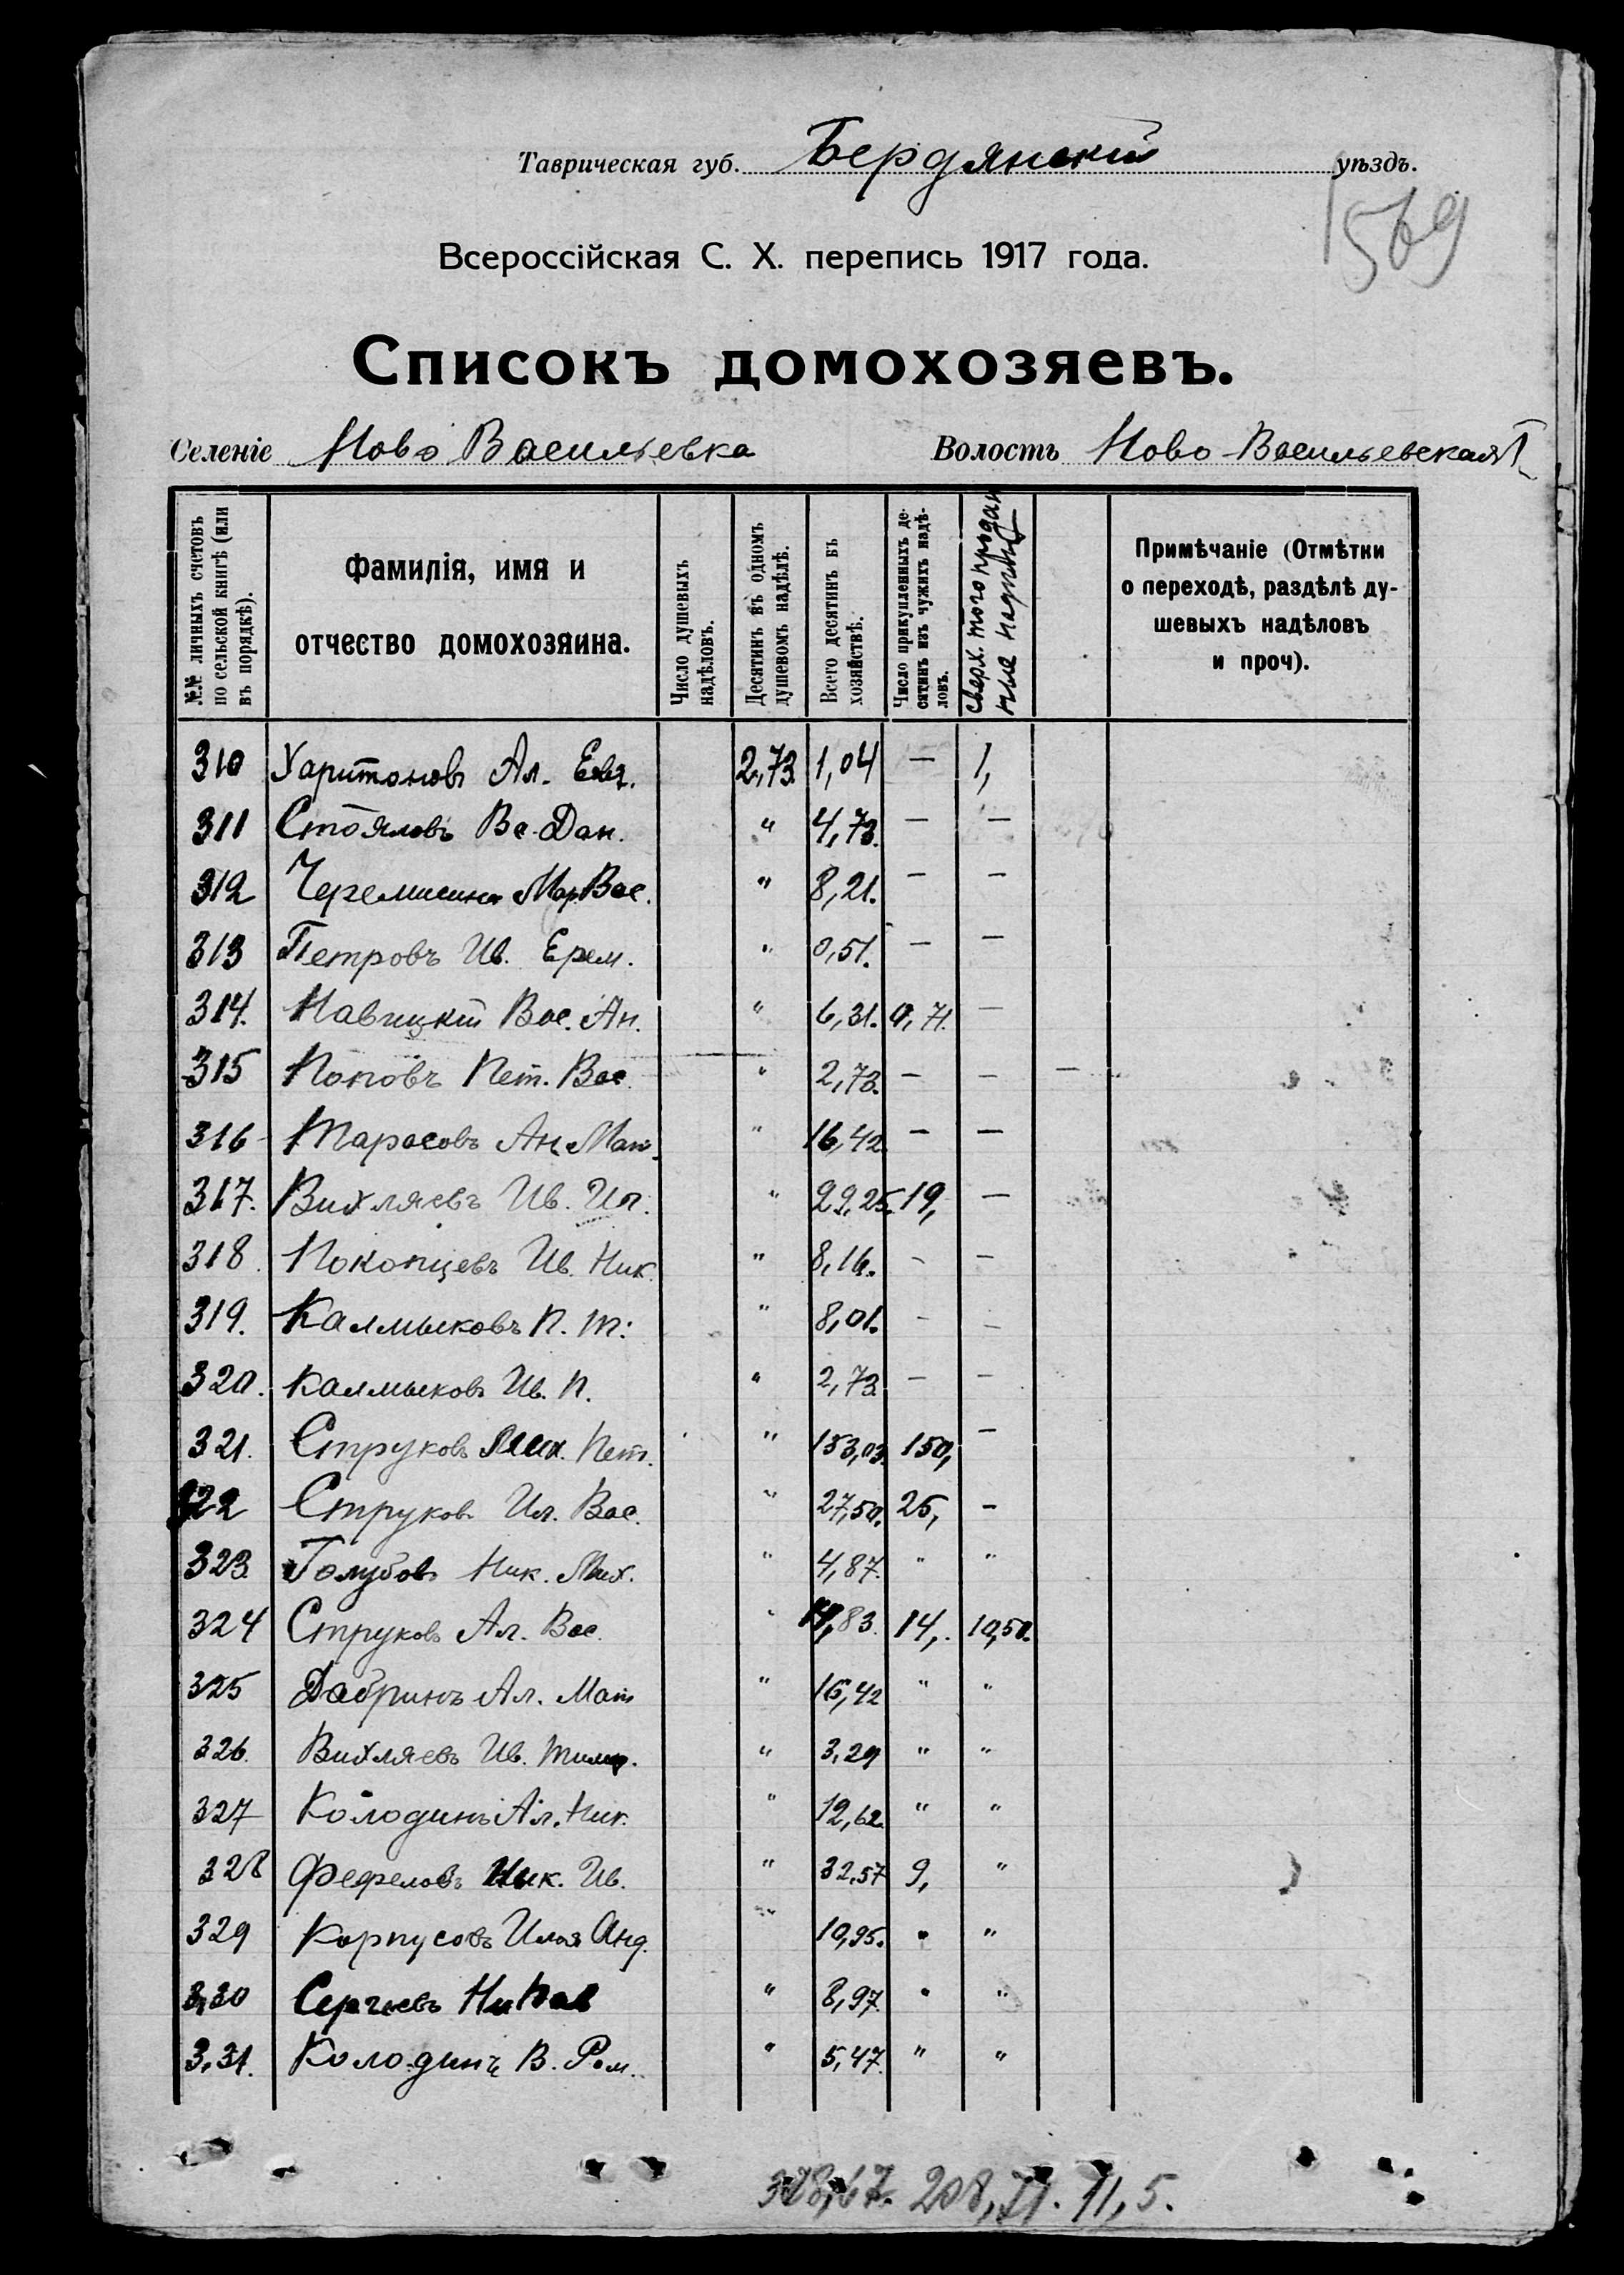 Таврическая губ. Бердянскій уѣздъ.
1569
Всероссійская С. Х. перепись 1917 года.
Списокъ домохозяевъ.
Селеніе Ново Васильевка Волость Ново-Васильевская I
№№ личныхъ счетовъ по сельской книгѣ (или въ порядкѣ).
Фамилія, имя и отчество домохозяина.
Число душевыхъ надѣловъ.
Десятинъ въ одномъ душевомъ надѣлѣ.
Всего десятинъ въ хозяйствѣ.
Число прикупленныхъ десятинъ изъ чужихъ надѣловъ.
сверх. того продан
Примѣчаніе (Отмѣтки о переходѣ, раздѣлѣ душевыхъ надѣловъ и проч).
310 Харитоновъ Ал. 2,73 1,04 — 1,
311 Стояловъ Ва. Дан. " 4,73. — —
312 Черемисина Мар. Вас. " 8,21. — —
313 Петровъ Ив. Ерем. " 0,51. — —
314. Навицкій Вас. Ан. " 6,31. 0,71. —
315 Поповъ Пет. Вас. " 2,73. — — —
316 Тарасовъ Ан. " 16,42 — —
317. Вихляевъ Ив. Ил. " 29,25. 19, —
318. Покопцевъ Ив. Ник. " 8,16. - —
319. Калмыковъ П. Т. " 8,01. - -
320. Калмыковъ Ив. П. " 2,73 — —
321. Струковъ Мих. Пет. " 153,03. 150, —
322 Струковъ Ил. Вас. " 27,50. 25, -
323. Голубовъ Ник. Мих. " 4,87. " "
324 Струковъ Ал. Вас. " 83. 14,. 10,50.
325 Добринъ Ал. Мат " 16,42 " "
326. Вихляевъ Ив. " 3,29 " "
327 Колодинъ Ал. Ник. " 12,62. " "
328 Фефеловъ Ник. Ив. " 32,57 9, "
329 Корпусовъ Илья Анд. " 10,95. " "
330 Сергѣевъ Ни Пав " 8,97. " "
331. Колодинъ В. Ром. " 5,47. " "
208,71. 11,5.